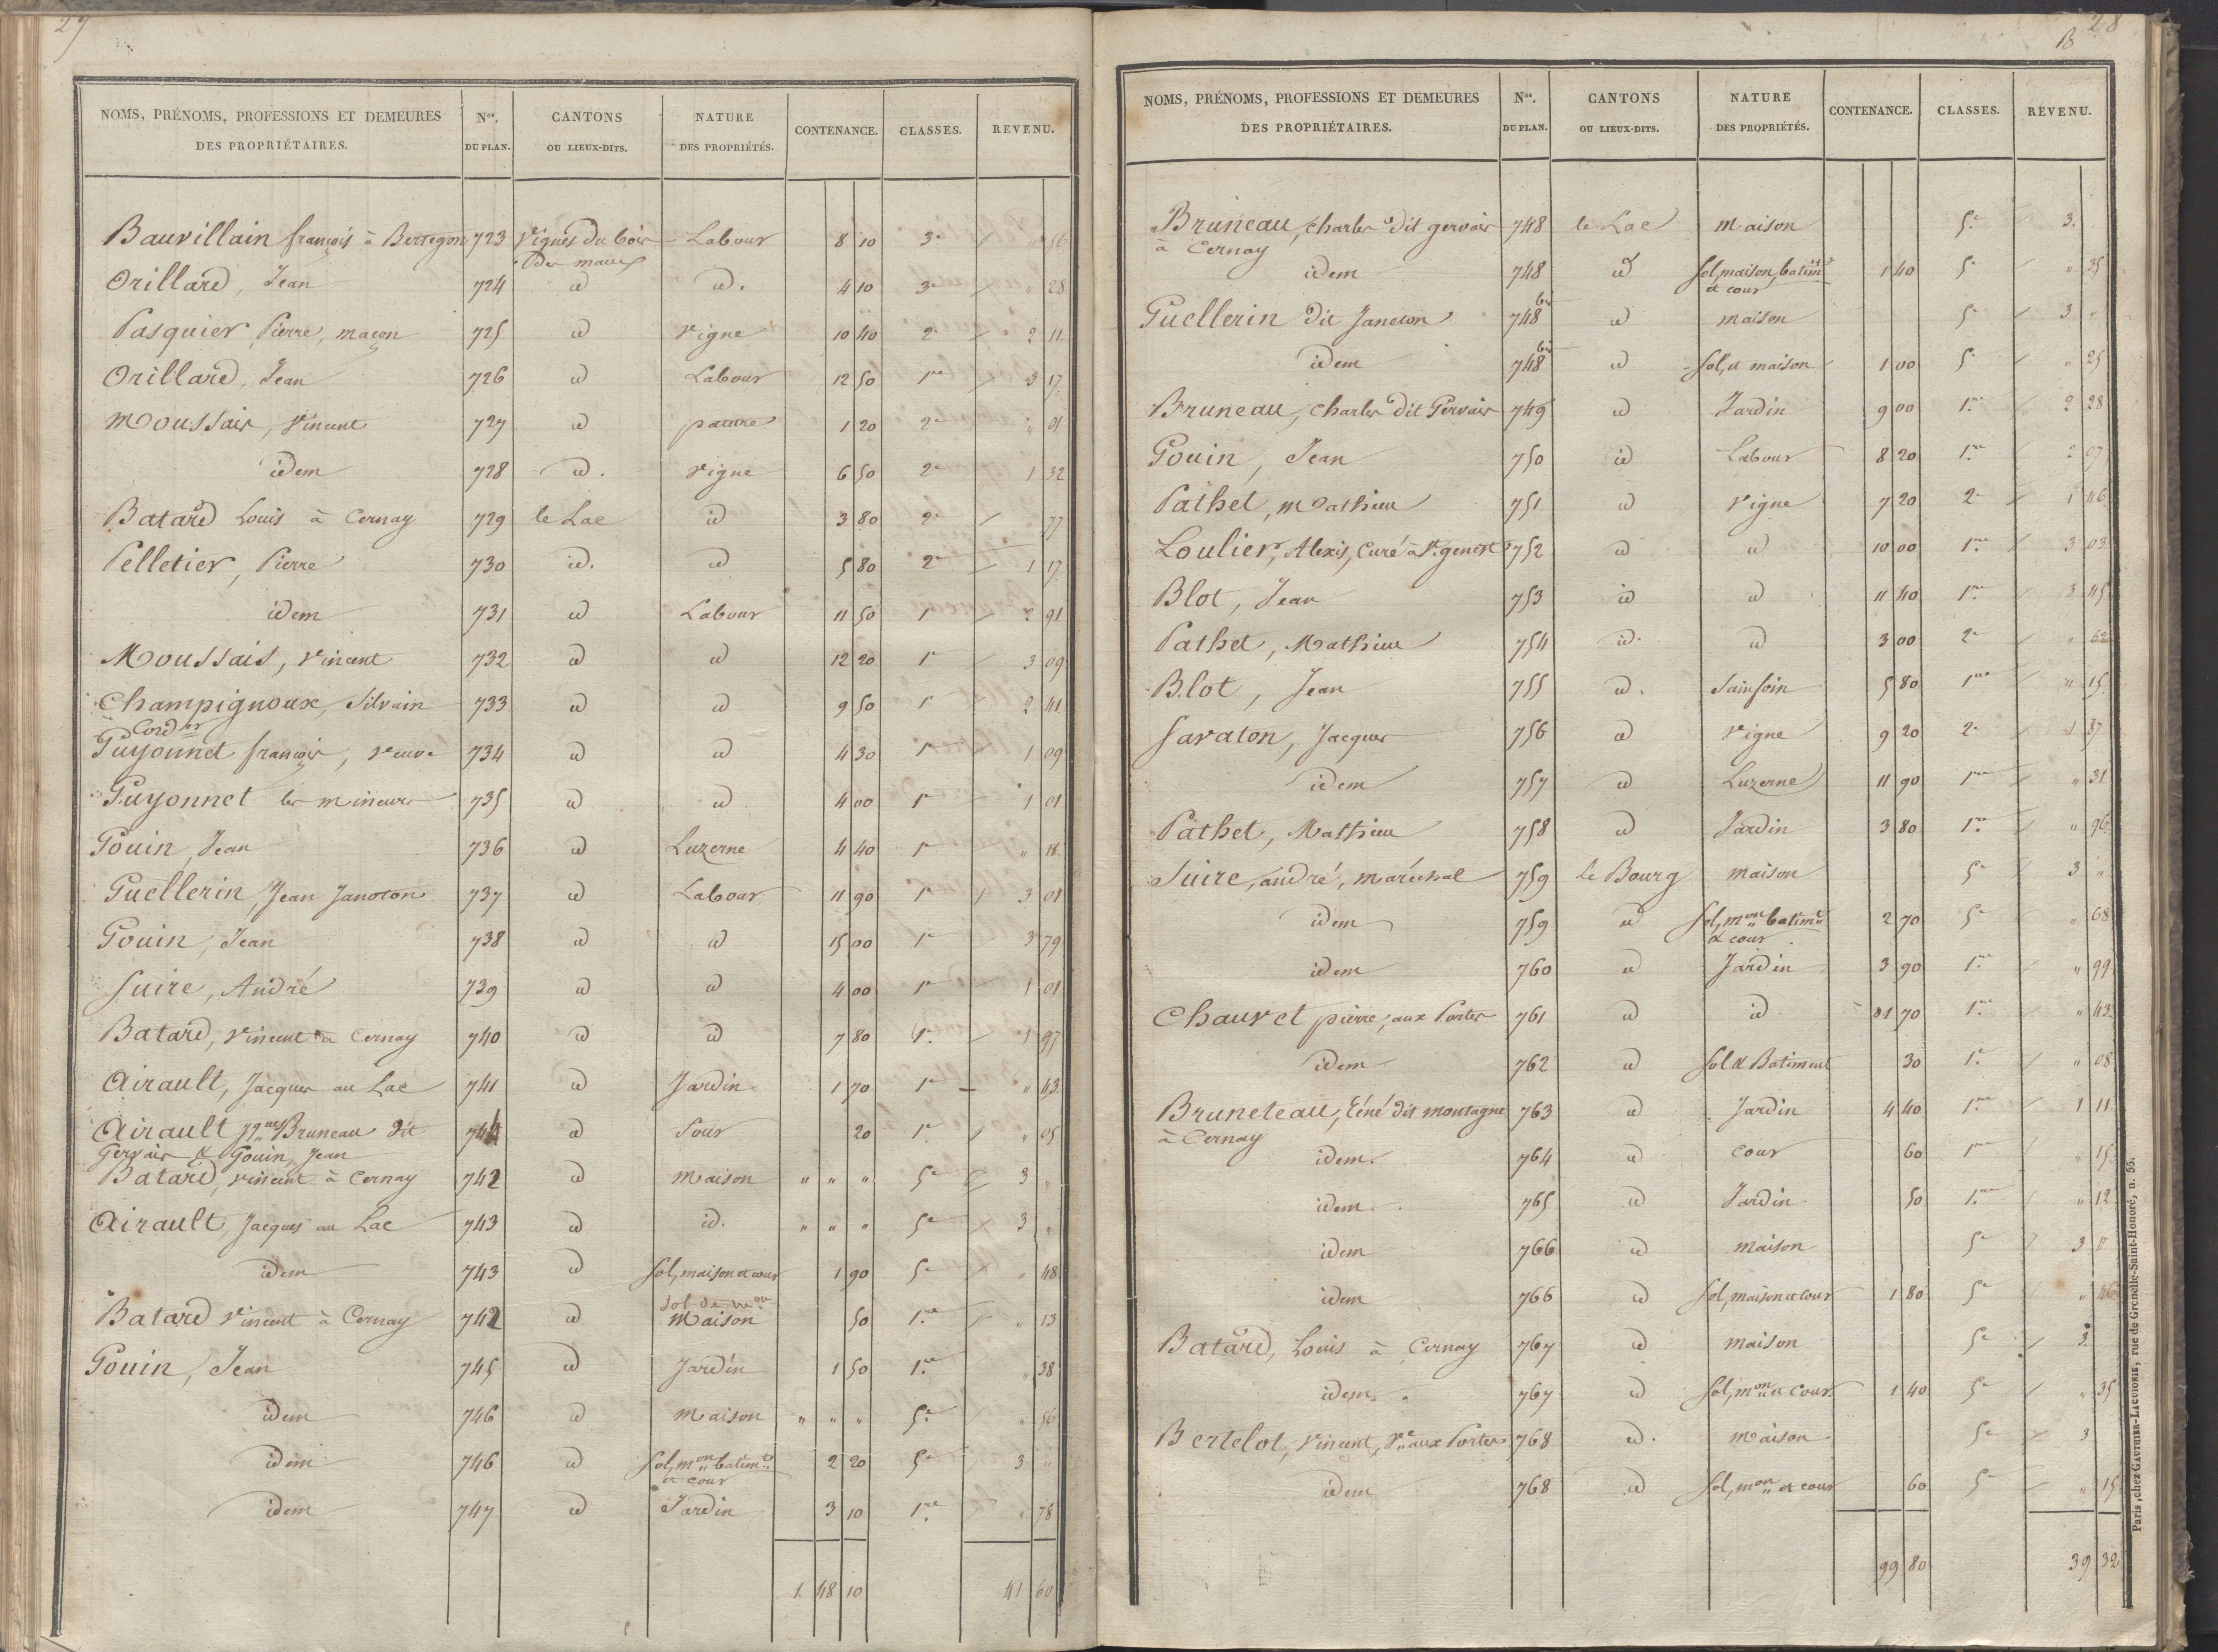 27
NOMS, PRÉNOMS, PROFESSIONS ET DEMEURES DES PROPRIÉTAIRES. Nos. DU PLAN. CANTONS OU LIEUX-DITS. NATURE DES PROPRIÉTÉS. CONTENANCE. CLASSES. REVENU.
Bauvillain françois à Bertegon 723 Vignes du bois Labour 8 10 3e " 56
des maux
Orillard, Jean 724 id id. 4 10 3e " 28
Pasquier Pierre, maçon 725 id vigne 10 40 2e 2 11
Orillard, Jean 726 id Labour 12 50 1re 3 17
Moussais, Vincent 727 id pature 1 20 2e " 01
idem 728 id. vigne 6 50 2e 1 32
Batard Louis à Cernay 729 le Lac id 3 80 2e " 77
Pelletier, Pierre 730 id. id 5 80 2e 1 17
idem 731 id Labour 11 50 1re 2 91
Moussais, Vincent 732 id id 12 20 1re 3 09
Champignoux, Silvain 733 id id 9 50 1re 2 41
Corder
Guyonnet françois, veuve 734 id id 4 30 1re 1 09
Guyonnet les mineurs 735 id id 4 00 1re 1 01
Gouin, Jean 736 id Luzerne 4 40 1re " 18
Guellerin, Jean Janoton 737 id Labour 11 90 1re 3 01
Gouin, Jean 738 id id 15 00 1re 3 79
Suire, André 739 id id 4 00 1re 1 01
Batard, Vincent à Cernay 740 id id 7 80 1re 1 97
Airault, Jacques au Lac 741 id Jardin 1 70 1re " 43
Airault Jques Bruneau dit id 20 1re " 05
Gervais & Gouin, Jean
Batard, vincent à Cernay 742 id Maison " " " 5e 3 "
Airault, Jacques au Lac 743 id id. " " " 5e 3 "
idem 743 id Sol, maison et cour 1 90 5e " 48
sol de mon
Batard Vincent à Cernay 742 id Maison 50 1re " 13
Gouin, Jean 745 id Jardin 1 50 1re " 38
idem 746 id Maison " " " 5e " 56
idem 746 id Sol, mon batimts 2 20 5e 3 "
et cour
idem 747 id Jardin 3 10 1re " 78
1 48 10 41 60
B 28
NOMS, PRÉNOMS, PROFESSIONS ET DEMEURES DES PROPRIÉTAIRES. Nos. DU PLAN. CANTONS OU LIEUX-DITS. NATURE DES PROPRIÉTÉS. CONTENANCE. CLASSES. REVENU.
Bruneau, Charles dit gervais 748 le Lac Maison 5e 3.
à Cernay
idem 748 id Sol, maison, batimts 1 40 5e " 35
et cour
Guellerin dit Janeton 748 bis id maison 5e 3 "
idem 748 bis id Sol, et maison 1 00 5e " 25
Bruneau, Charles dit Gervais 749 id Jardin 9 00 1re 2 28
Gouin, Jean 750 id Labour 8 20 1re 2 07
Pathet, Mathieu 751 id Vigne 7 20 2e 1 46
Loulier, Alexis, Curé à St. genest 752 id id 10 00 1re 3 03
Blot, Jean 753 id id 11 40 1re 3 45
Pathet, Mathieu 754 id. id 3 00 2e " 62
Blot, Jean 755 id. Sainfoin 5 80 1re " 15
Savaton, Jacques 756 id Vigne 9 20 2e 1 87
idem 757 id Luzerne 11 90 1re " 31
Pathet, Mathieu 758 id Jardin 3 80 1re " 96
Suire, andré, maréchal 759 le Bourg Maison 5e 3 "
idem 759 id Sol, mon batimts 2 70 5e " 68
& cour
idem 760 id Jardin 3 90 1re " 99
Chauvet pierre, aux Portes 761 id id 1 70 1re " 43
idem 762 id Sol & Batiment 30 1re " 08
Bruneteau, réné dit montagne 763 id Jardin 4 40 1re 1 11
à Cernay
idem. 764 id Cour 60 1re " 15
idem. 765 id Jardin 50 1re " 12
idem 766 id Maison 5e 3 "
idem 766 id Sol, maison et Cour 1 80 5e " 46
Batard, Louis à Cernay 767 id Maison 5e 3
idem. 767 id Sol, mon et Cour 1 40 5e " 35
Bertelot, Vincent, Ve aux Portes 768 id. Maison 5e 3
idem 768 id Sol, mon et cour 60 5e " 15
99 80 39 32
Paris, chez GAUTHIER-LAGUIONIE, rue de Grenelle-Saint-Honoré, n. 55.